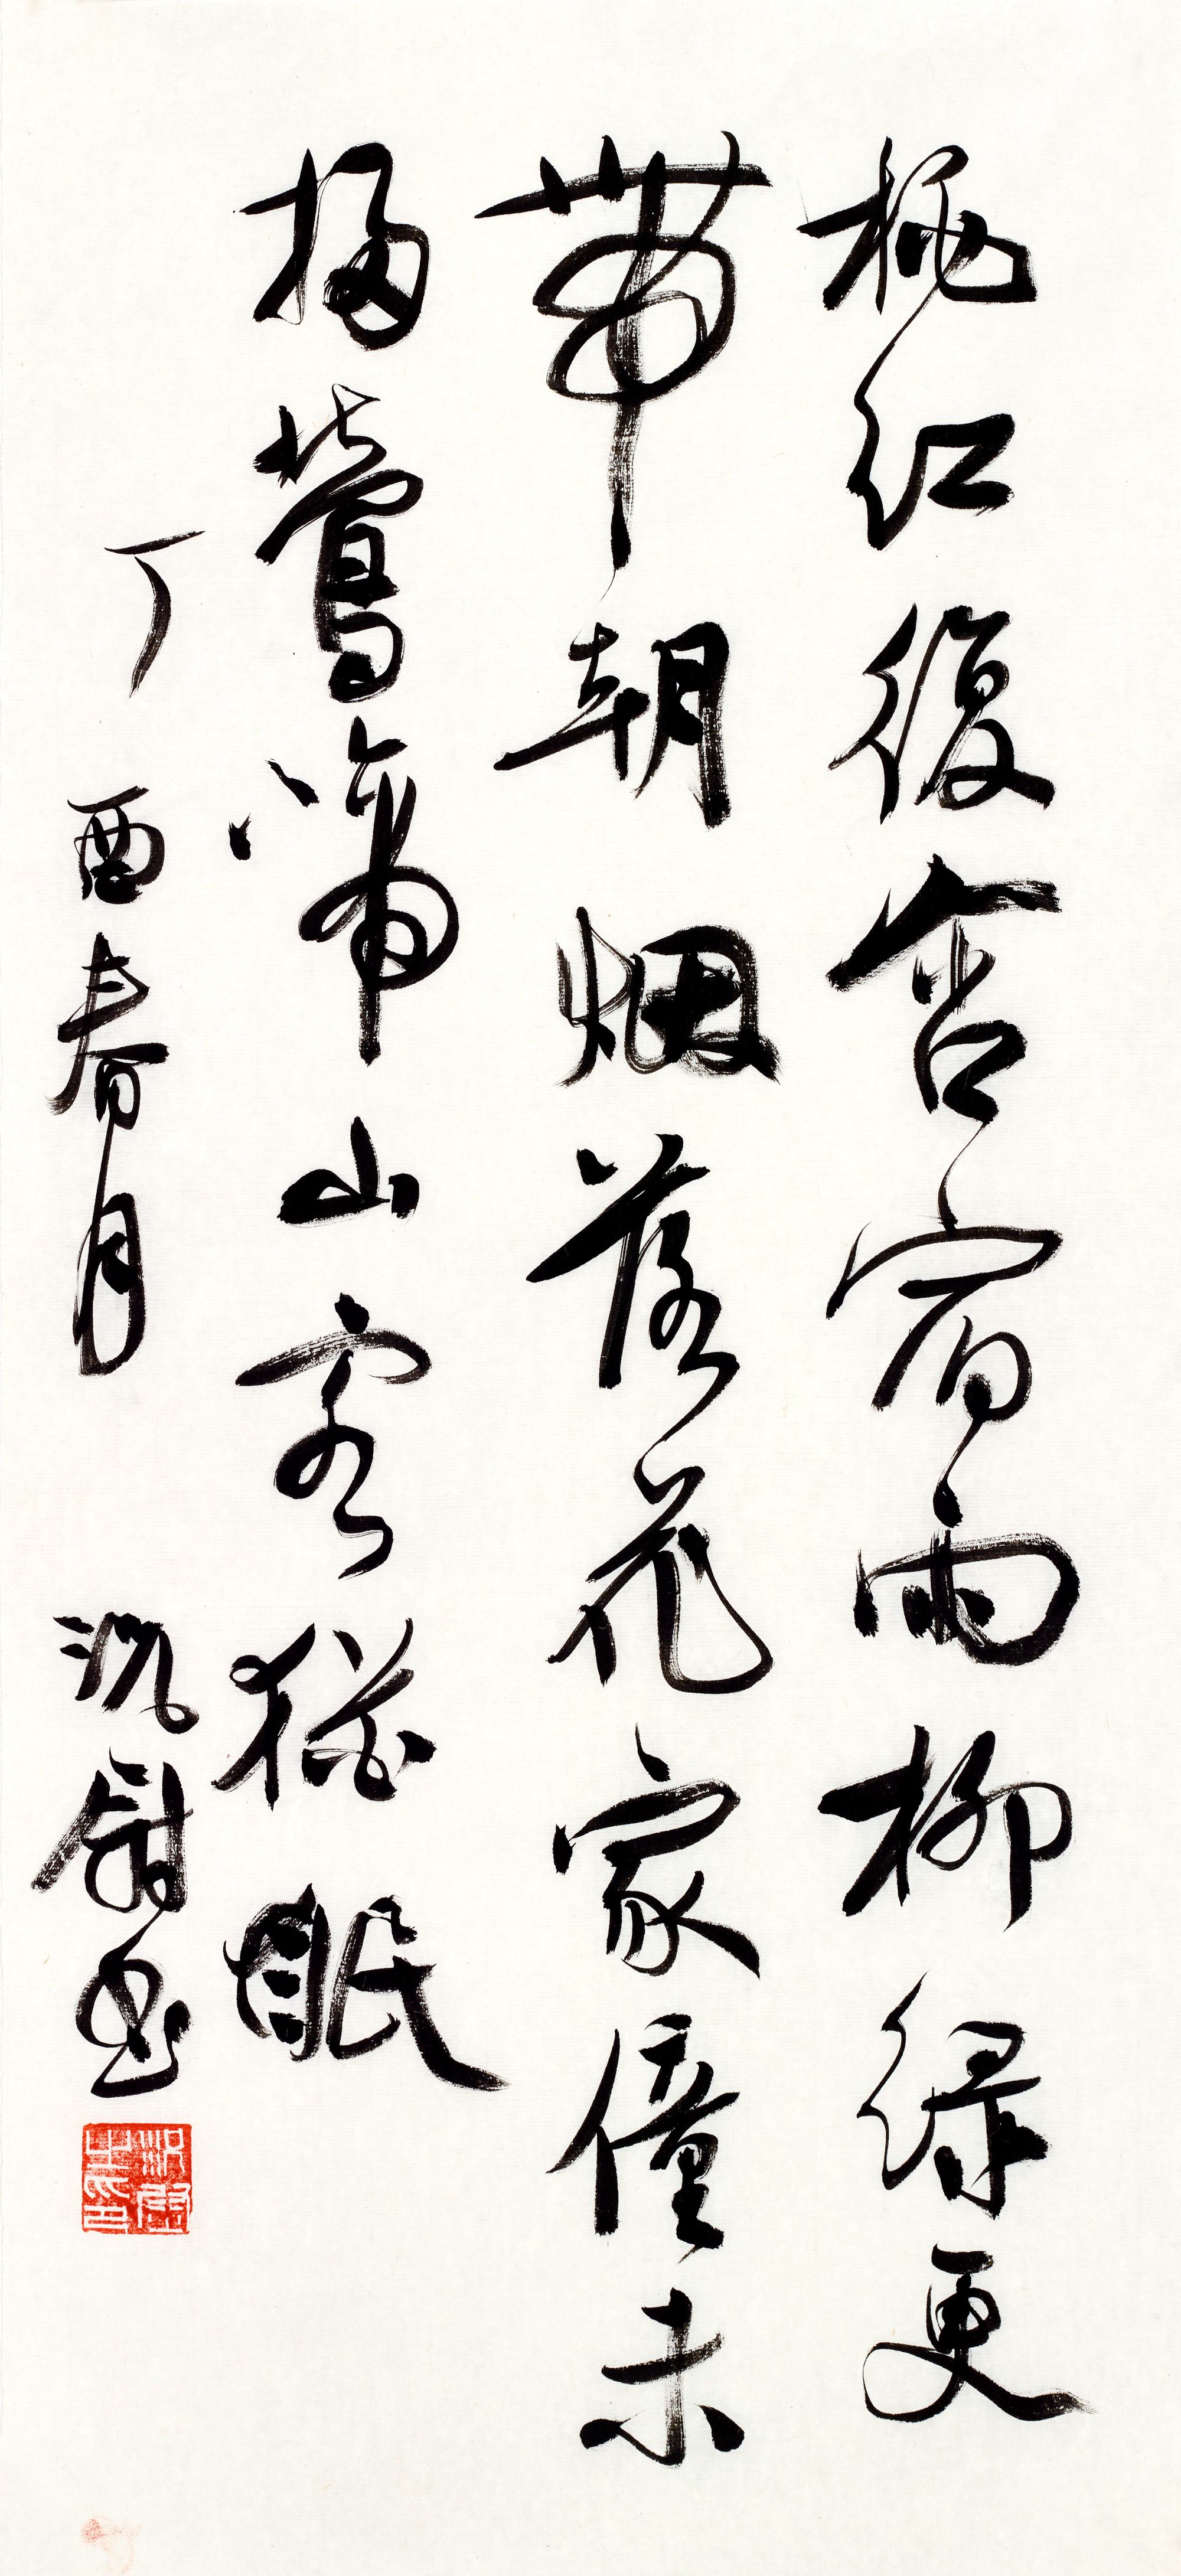 桃红復含宿雨柳绿更
帶朝烟落花家僮未
掃鶯啼山客猶眠
丁酉春月 沈书